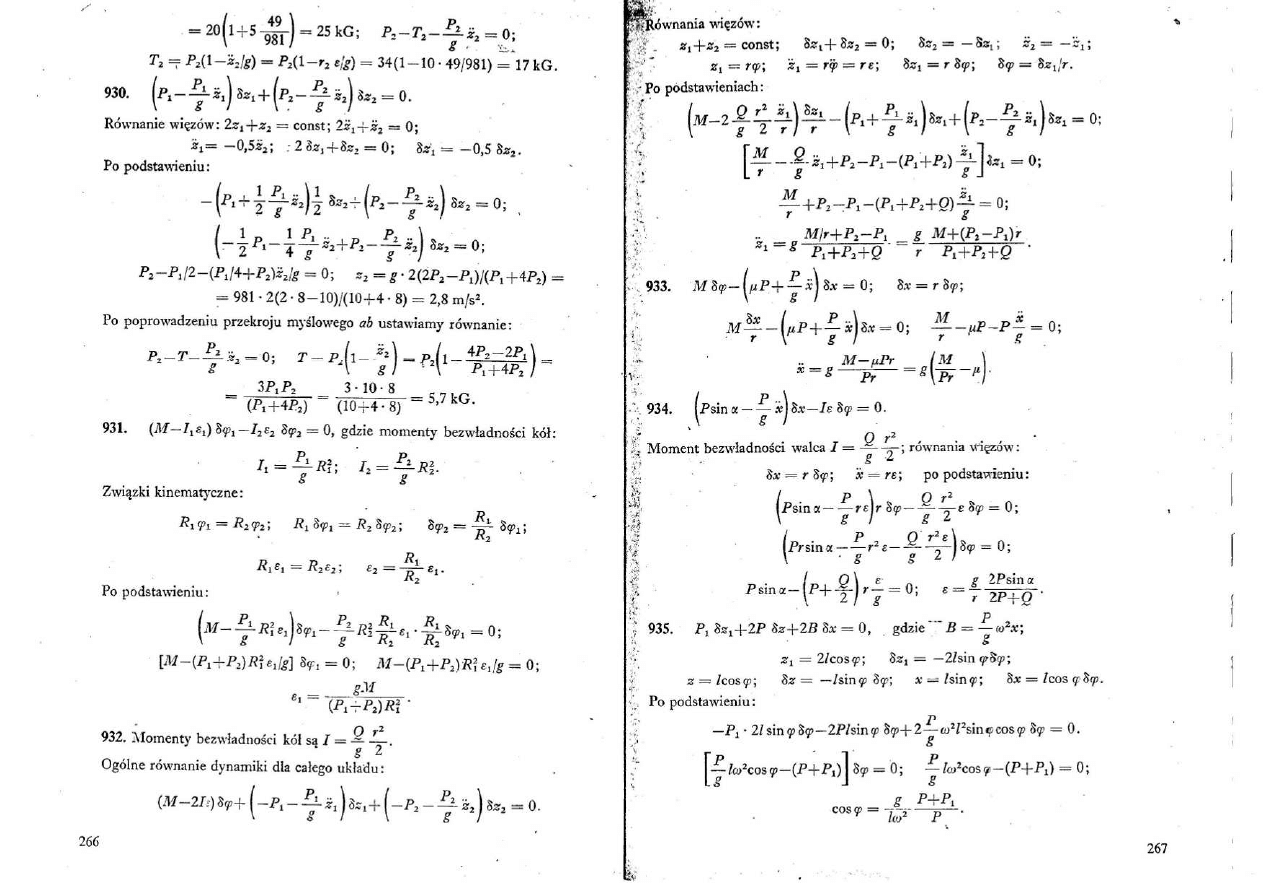 = 20(1+5 49/981) = 25 kG; P₂−T₂−P₂/g z̈₂ = 0;
T₂ = P₂(1−z̈₂/g) = P₂(1−r₂ ε/g) = 34(1−10·49/981) = 17 kG.
930. (P₁−P₁/g z̈₁) δz₁+(P₂−P₂/g z̈₂) δz₂ = 0.
Równanie więzów: 2z₁+z₂ = const; 2z̈₁+z̈₂ = 0;
z̈₁= −0,5z̈₂; 2 δz₁+δz₂ = 0; δz₁ = −0,5 δz₂.
Po podstawieniu:
−(P₁+1/2 P₁/g z̈₂)1/2 δz₂+(P₂−P₂/g z̈₂) δz₂ = 0;
(−1/2 P₁−1/4 P₁/g z̈₂+P₂−P₂/g z̈₂) δz₂ = 0;
P₂−P₁/2−(P₁/4+P₂)z̈₂/g = 0; z₂ = g·2(2P₂−P₁)/(P₁+4P₂) =
= 981·2(2·8−10)/(10+4·8) = 2,8 m/s².
Po poprowadzeniu przekroju myślowego ab ustawiamy równanie:
P₂−T−P₂/g z̈₂ = 0; T = P₂(1−z̈₂/g) = P₂(1−(4P₂−2P₁)/(P₁+4P₂)) =
= 3P₁P₂/(P₁+4P₂) = 3·10·8/(10+4·8) = 5,7 kG.
931. (M−I₁ε₁) δφ₁−I₂ε₂ δφ₂ = 0, gdzie momenty bezwładności kół:
I₁ = P₁/g R₁²; I₂ = P₂/g R₂².
Związki kinematyczne:
R₁φ₁ = R₂φ₂; R₁ δφ₁ = R₂ δφ₂; δφ₂ = R₁/R₂ δφ₁;
R₁ε₁ = R₂ε₂; ε₂ = R₁/R₂ ε₁.
Po podstawieniu:
(M−P₁/g R₁² ε₁)δφ₁−P₂/g R₂² R₁/R₂ ε₁·R₁/R₂ δφ₁ = 0;
[M−(P₁+P₂)R₁² ε₁/g] δφ₁ = 0; M−(P₁+P₂)R₁² ε₁/g = 0;
ε₁ = gM/(P₁+P₂)R₁².
932. Momenty bezwładności kół są I = Q/g r²/2.
Ogólne równanie dynamiki dla całego układu:
(M−2Iε) δφ+(−P₁−P₁/g z̈₁) δz₁+(−P₂−P₂/g z̈₂) δz₂ = 0.
266
Równania więzów:
z₁+z₂ = const; δz₁+δz₂ = 0; δz₂ = −δz₁; z̈₂ = −z̈₁;
z₁ = rφ; z̈₁ = rφ̈ = rε; δz₁ = r δφ; δφ = δz₁/r.
Po podstawieniach:
(M−2 Q/g r²/2 z̈₁/r) δz₁/r −(P₁+P₁/g z̈₁)δz₁+(P₂−P₂/g z̈₁)δz₁ = 0;
[M/r − Q/g z̈₁+P₂−P₁−(P₁+P₂) z̈₁/g]δz₁ = 0;
M/r +P₂−P₁−(P₁+P₂+Q) z̈₁/g = 0;
z̈₁ = g (M/r+P₂−P₁)/(P₁+P₂+Q) = g/r (M+(P₂−P₁)r)/(P₁+P₂+Q).
933. M δφ−(μP+P/g ẍ) δx = 0; δx = r δφ;
M δx/r −(μP+P/g ẍ)δx = 0; M/r −μP−P ẍ/g = 0;
ẍ = g (M−μPr)/Pr = g(M/Pr −μ).
934. (Psin α−P/g ẍ)δx−Iε δφ = 0.
Moment bezwładności walca I = Q/g r²/2; równania więzów:
δx = r δφ; ẍ = rε; po podstawieniu:
(Psin α−P/g rε)r δφ−Q/g r²/2 ε δφ = 0;
(Prsin α−P/g r² ε−Q/g r²ε/2)δφ = 0;
Psin α−(P+Q/2) r ε/g = 0; ε = g/r 2Psin α/(2P+Q).
935. P₁ δz₁+2P δz+2B δx = 0, gdzie B = P/g ω²x;
z₁ = 2lcos φ; δz₁ = −2lsin φδφ;
z = lcos φ; δz = −lsin φ δφ; x = lsin φ; δx = lcos φ δφ.
Po podstawieniu:
−P₁·2l sin φ δφ−2Plsin φ δφ+2 P/g ω²l²sin φ cos φ δφ = 0.
[P/g lω²cos φ−(P+P₁)] δφ = 0; P/g lω²cos φ−(P+P₁) = 0;
cos φ = g/lω² (P+P₁)/P.
267